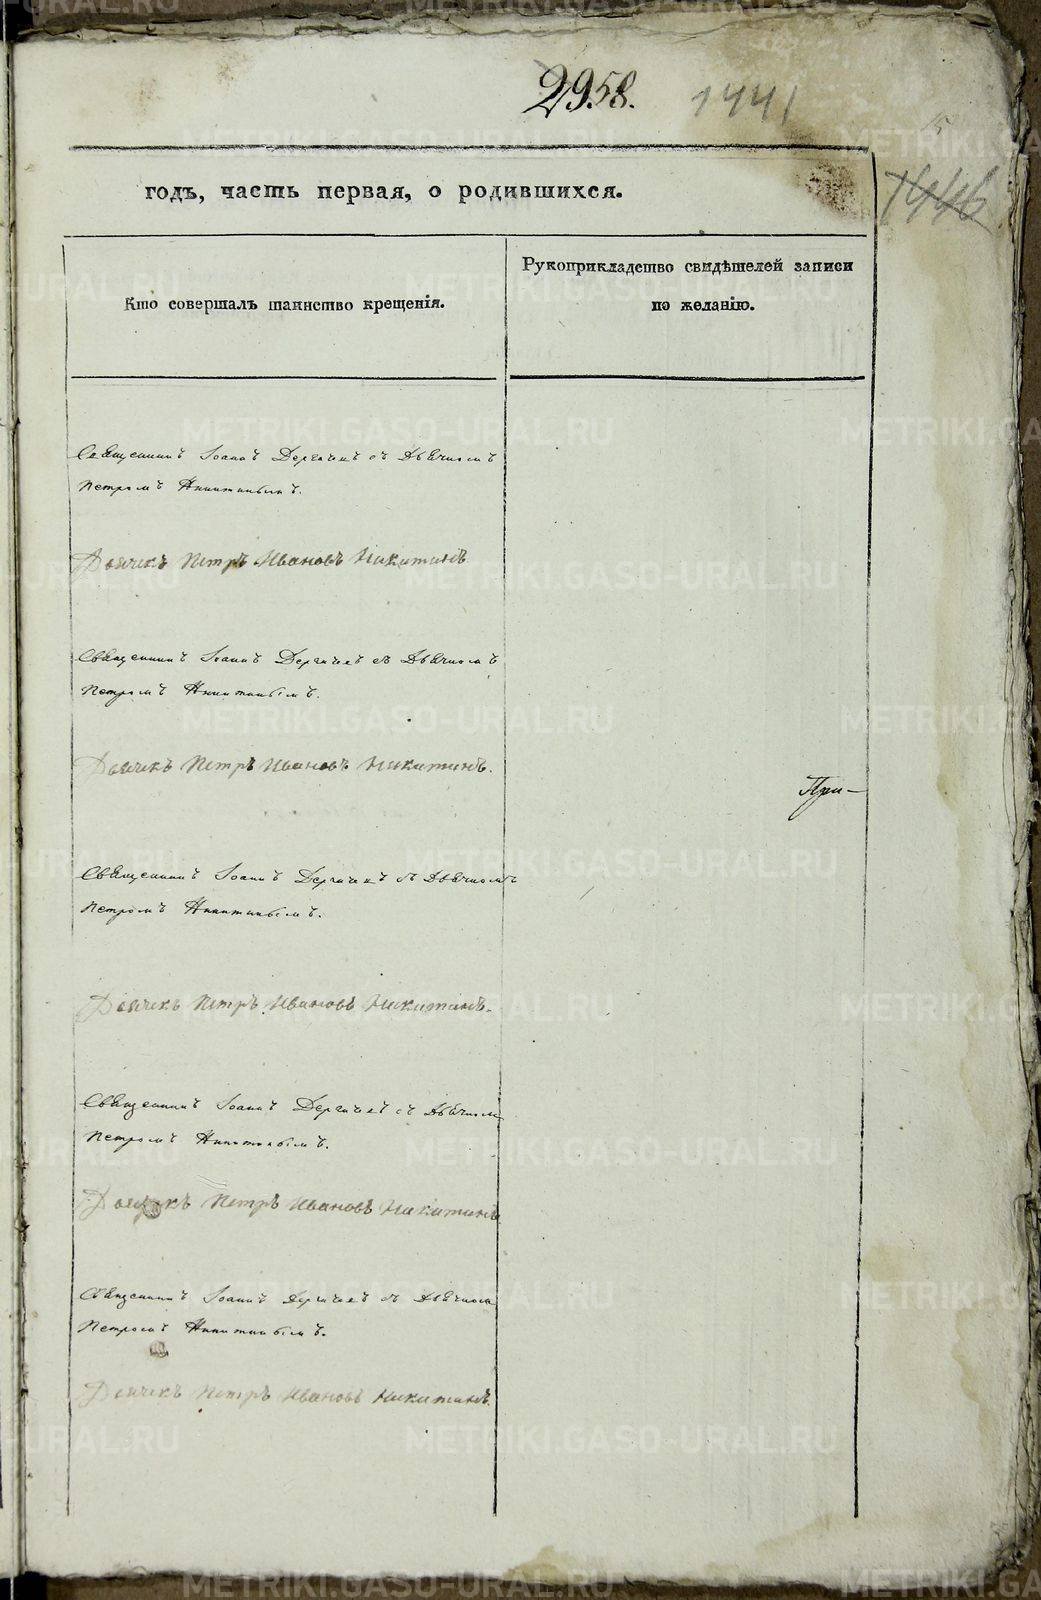 2958. 1441
1446
годъ, часть первая, о родившихся.
Кто совершалъ таинство крещенія.
Рукоприкладство свидѣтелей записи
по желанію.
Священникъ Іоаннъ Дергачевъ съ Дьячкомъ
Петромъ Никитинымъ.
Дьячекъ Петръ Ивановъ Никитинъ
Священникъ Іоаннъ Дергачевъ съ Дьячкомъ
Петромъ Никитинымъ.
Дьячекъ Петръ Ивановъ Никитинъ.
При-
Священникъ Іоаннъ Дергачевъ съ Дьячкомъ
Петромъ Никитинымъ.
Дьячекъ Петръ Ивановъ Никитинъ.
Священникъ Іоаннъ Дергачевъ съ Дьячком
Петромъ Никитинымъ.
Дьячекъ Петръ Ивановъ Никитинъ
Священникъ Іоаннъ Дергачевъ съ Дьячком
Петромъ Никитинымъ.
Дьячекъ Петръ Ивановъ Никитинъ.
METRIKI.GASO-URAL.RU